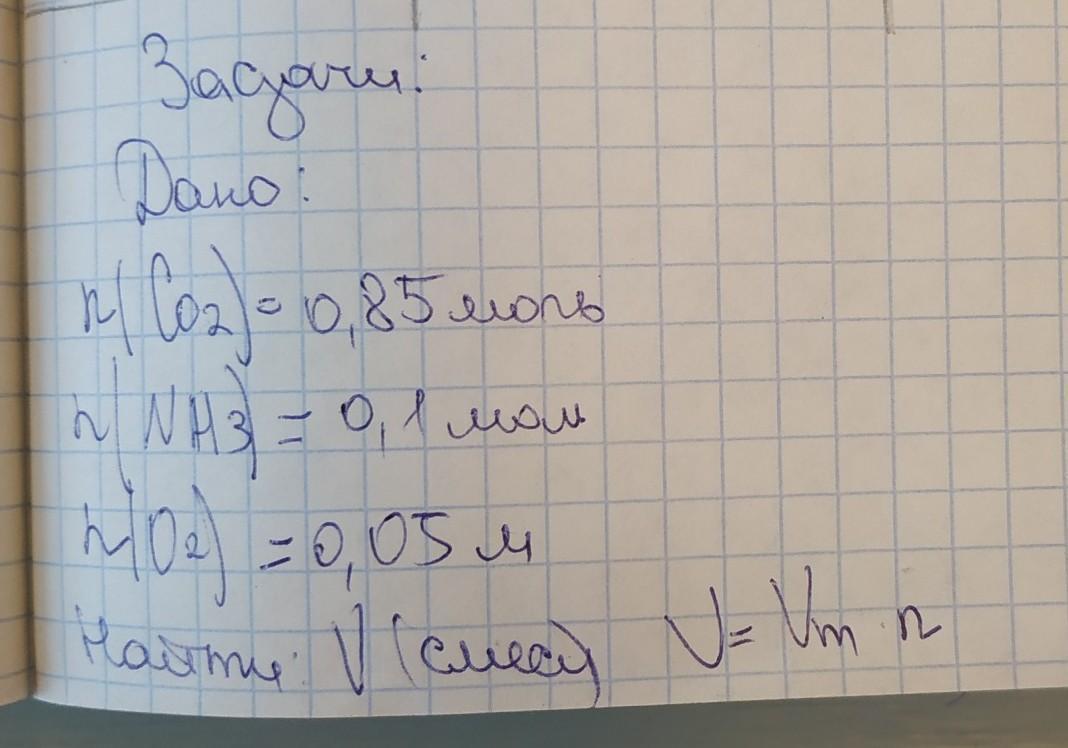 Задачи:
Дано:
n(CO2)= 0,85 моль
n(NH3) = 0,1 мол
n(O2) = 0,05 м
Найти: V (смеси) V= Vm · n